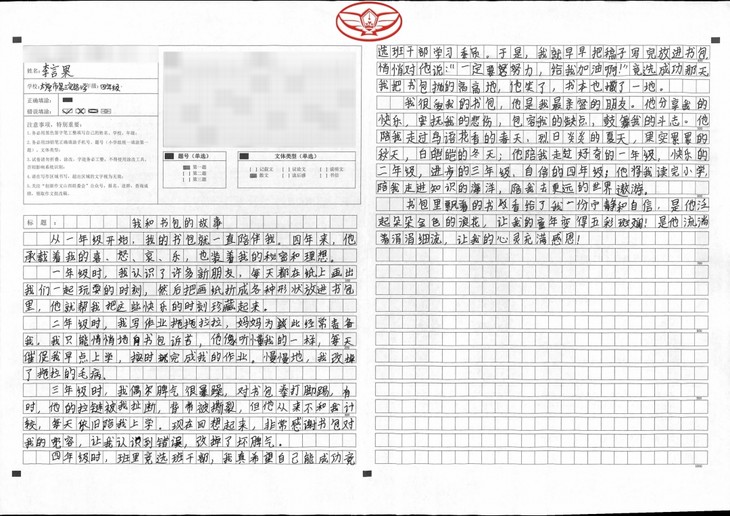 姓名：李言果
年级：四年级
正确填涂：
错误填涂：
注意事项，特别重要：
题号（单选）
文体类型（单选）
[ ] 第一题
[ ] 第三题
[ ] 记叙文 [ ] 议论文
[ ] 散文 [ ] 读后感 [ ] 书信
标题：我和书包的故事
从一年级开始，我的书包就一直陪伴我。四年来，他
承载着我的喜、怒、哀、乐，也装着我的秘密和理想。
一年级时，我认识了许多新朋友，每天都在纸上画出
我们一起玩耍的时刻，然后把画纸折成各种形状放进书包
里，他就帮我把这些快乐的时刻珍藏起来。
二年级时，我写作业拖拖拉拉，妈妈为此经常责备
我，我只能悄悄地向书包诉苦，他像听懂我的一样，每天
催促我早点上学，按时完成我的作业。慢慢地，我改掉
了拖拉的毛病。
三年级时，我偶尔脾气很暴躁，对书包拳打脚踢，有
时，他的拉链被我扯断，背带被撕裂，但他从来不和我计
较，每天依旧陪我上学。现在回想起来，非常感谢书包对
我的宽容，让我认识到错误，改掉了坏脾气。
四年级时，班里竞选班干部，我真希望自己能成功竞
选班干部学习委员。于是，我就早早把稿子写完放进书包
悄悄对他说：“一定要努力，给我加油啊！”竞选成功那天
我把书包抛的高高地，他笑了，书本也撒了一地。
我很爱我的书包，他是我最亲密的朋友。他分享我的
快乐，安抚我的悲伤，包容我的缺点，鼓舞我的斗志。他
陪我走过鸟语花香的春天，烈日炎炎的夏天，果实累累的
秋天，白皑皑的冬天；他陪我走过好奇的一年级，快乐的
二年级，进步的三年级，自信的四年级；他将我读完小学，
陪我走进知识的海洋，陪我去更远的世界遨游。
书包里飘着的书香给了我一份宁静和自信，是他泛
起朵朵金色的浪花，让我的童年变得五彩斑斓！是他流淌
着涓涓细流，让我的心灵充满感恩！